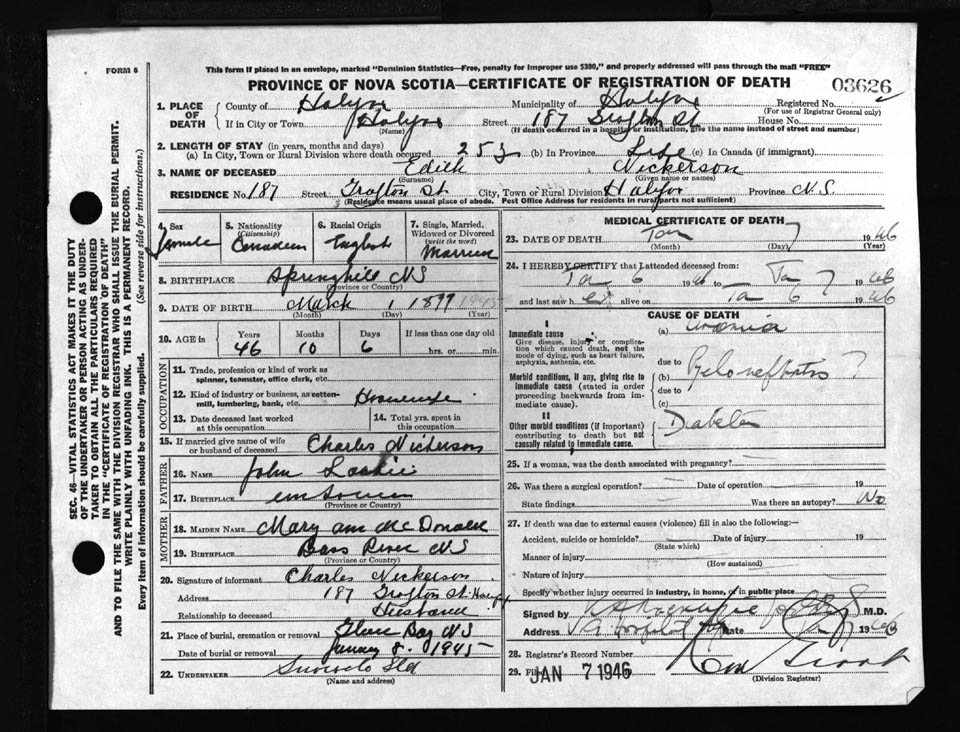 FORM 6
This form if placed in an envelope, marked "Dominion Statistics—Free, penalty for improper use $300," and properly addressed will pass through the mail "FREE"
PROVINCE OF NOVA SCOTIA—CERTIFICATE OF REGISTRATION OF DEATH
03626
1. PLACE OF DEATH
County of Halifax Municipality of Halifax Registered No.
(For use of Registrar General only)
If in City or Town Halifax Street 187 Grafton St House No.
(Name) (If death occurred in a hospital or institution, give the name instead of street and number)
2. LENGTH OF STAY (in years, months and days)
(a) In City, Town or Rural Division where death occurred 25 y (b) In Province Life (c) In Canada (if immigrant)
3. NAME OF DECEASED Edith Nickerson
(Surname) (Given name or names)
RESIDENCE No. 187 Street Grafton St City, Town or Rural Division Halifax Province N.S.
(Residence means usual place of abode. Post Office Address for residents in rural parts not sufficient)
4. Sex Female
5. Nationality (Citizenship) Canadian
6. Racial Origin English
7. Single, Married, Widowed or Divorced (write the word) Married
8. BIRTHPLACE Springhill NS
(Province or Country)
9. DATE OF BIRTH March 1 1899 1945
(Month) (Day) (Year)
10. AGE in Years Months Days If less than one day old
46 10 6 hrs. or min.
OCCUPATION
11. Trade, profession or kind of work as spinner, teamster, office clerk, etc.
12. Kind of industry or business, as cotton-mill, lumbering, bank, etc. Housewife
13. Date deceased last worked at this occupation
14. Total yrs. spent in this occupation
15. If married give name of wife or husband of deceased Charles Nickerson
FATHER
16. NAME John
17. BIRTHPLACE
(Province or Country)
MOTHER
18. MAIDEN NAME Mary Ann McDonald
19. BIRTHPLACE Bass River NS
(Province or Country)
20. Signature of informant Charles Nickerson
Address 187 Grafton St. Halifax
Relationship to deceased Husband
21. Place of burial, cremation or removal Glace Bay NS
Date of burial or removal January 8. 1945
22. UNDERTAKER Snows Ltd
(Name and address)
MEDICAL CERTIFICATE OF DEATH
23. DATE OF DEATH Jan 7 1946
(Month) (Day) (Year)
24. I HEREBY CERTIFY that I attended deceased from:
Jan 6 1946 to Jan 7 1946
and last saw her alive on Jan 6 1946
CAUSE OF DEATH
I
Immediate cause
Give disease, injury or complication which caused death, not the mode of dying, such as heart failure, asphyxia, asthenia, etc.
(a) Uraemia
due to
Morbid conditions, if any, giving rise to immediate cause (stated in order proceeding backwards from immediate cause).
(b) Pyelonephritis ?
due to
(c)
II
Other morbid conditions (if important) contributing to death but not causally related to immediate cause.
Diabetes
25. If a woman, was the death associated with pregnancy?
26. Was there a surgical operation? Date of operation 19
State findings Was there an autopsy? No
27. If death was due to external causes (violence) fill in also the following:—
Accident, suicide or homicide? Date of injury 19
(State which)
Manner of injury
(How sustained)
Nature of injury
Specify whether injury occurred in industry, in home, or in public place
Signed by M.D.
Address Date Jan 7 1946
28. Registrar's Record Number
29. Filed JAN 7 1946
(Division Registrar)
SEC. 46—VITAL STATISTICS ACT MAKES IT THE DUTY OF THE UNDERTAKER OR PERSON ACTING AS UNDERTAKER TO OBTAIN ALL THE PARTICULARS REQUIRED IN THE "CERTIFICATE OF REGISTRATION OF DEATH"
AND TO FILE THE SAME WITH THE DIVISION REGISTRAR WHO SHALL ISSUE THE BURIAL PERMIT.
WRITE PLAINLY WITH UNFADING INK. THIS IS A PERMANENT RECORD.
Every item of information should be carefully supplied. (See reverse side for instructions.)